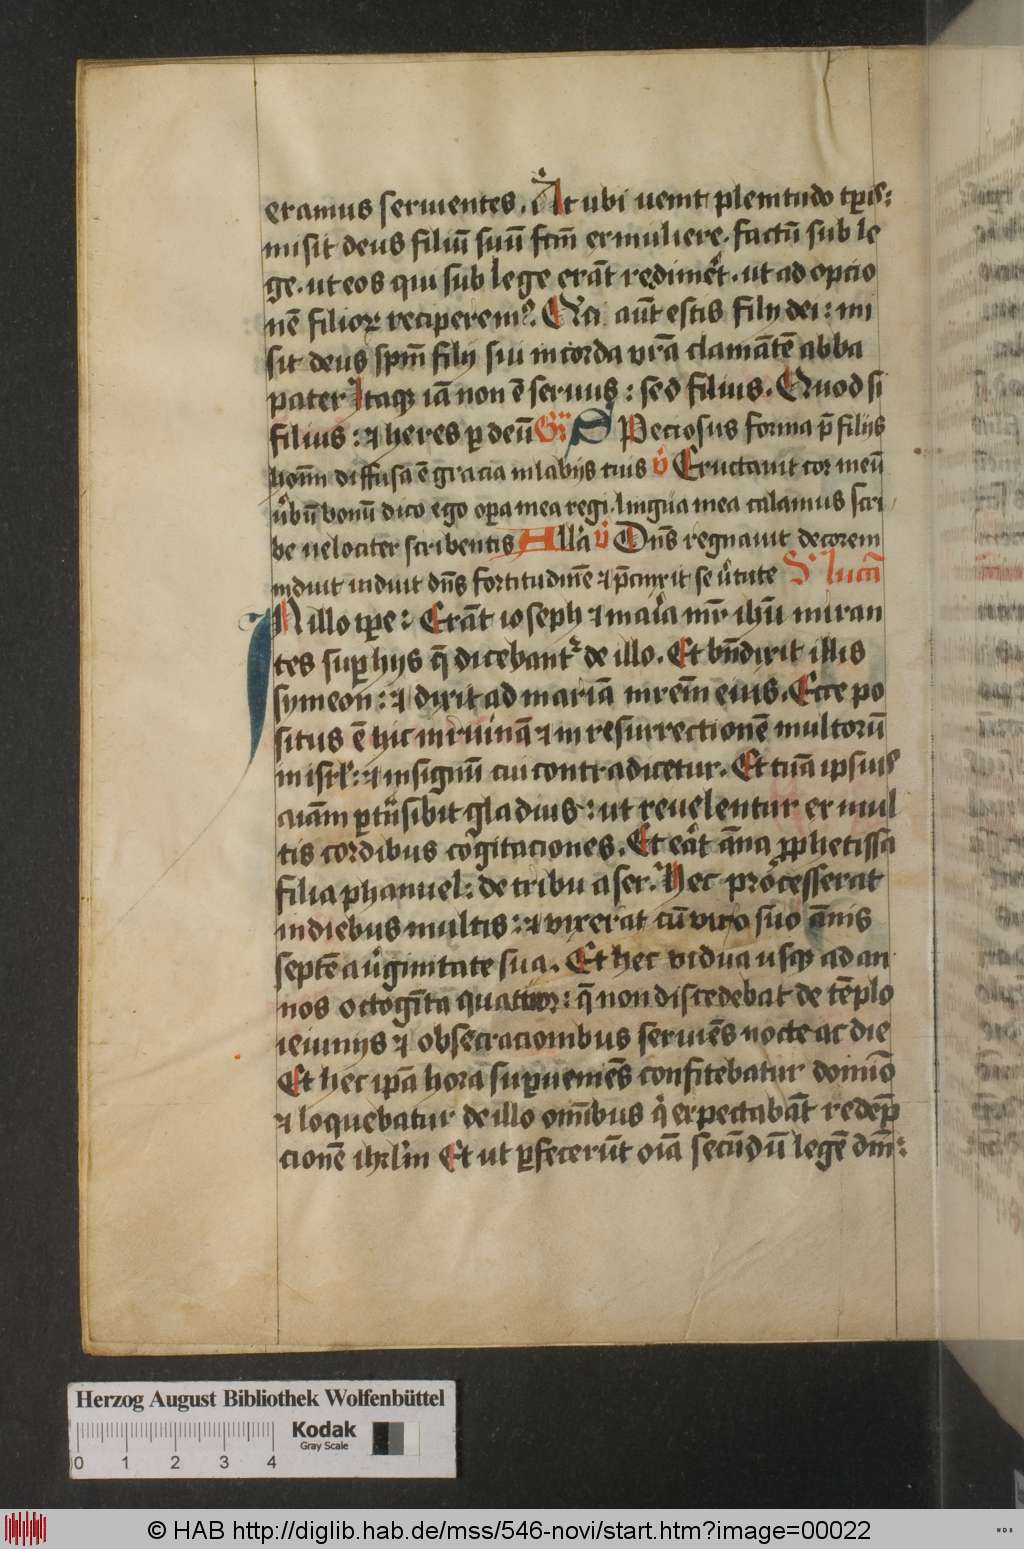 eramus seruientes. At ubi uenit plenitudo tꝑis:
misit deus filiū suū fc̄m ex muliere. factū sub le
ge. ut eos qui sub lege erāt redimēt. ut adopcio
nē filioꝝ reciperemꝰ. Qm̄ aūt estis filij dei: mi
sit deus sp̄m filij sui in corda vr̄a clamātē abba
pater Itaqꝫ iā non ē seruus: sed filius. Quod si
filius: ⁊ heres ꝑ deū Gr̄ Speciosus forma p̄ filijs
hom̄ diffusa ē gracia in labijs tuis v̄ Eructauit cor meū
űbū bonū dico ego oꝑa mea regi. lingua mea calamus scri
be uelociter scribentis Alla v̄ Dn̄s regnauit decorem
induit induit dn̄s fortitudinē ⁊ p̄cinxit se űtute S lucā
IN illo tꝑe: Erāt ioseph ⁊ maria mr̄ ihū miran
tes suꝑ hijs q̄ dicebantᷣ de illo. Et bn̄dixit illis
symeon: ⁊ dixit ad mariā mr̄em eius. Ecce po
situs ē hic in ruinā ⁊ in resurrectionē multorū
in isrl̄: ⁊ in signū cui contradicetur. Et tuā ipsius
aīam ꝑtn̄sibit gladius: ut reuelentur ex mul
tis cordibus cogitaciones. Et eāt āna ꝓphetissa
filia phanuel: de tribu aser. Hec processerat
in diebus multis: ⁊ vixerat cū viro suo ānis
septē a űginitate sua. Et hec vidua usqꝫ ad an
nos octogīta quatuor: q̄ non discedebat de tēplo
ieiunijs ⁊ obsecracionibus seruiēs nocte ac die
Et hec ip̄a hora suꝑueniēs confitebatur domīo
⁊ loquebatur de illo om̄ibus q̄ expectabāt redēp
cionē ihrl̄m Et ut ꝑfecerūt oīa secūdū legē dm̄:
Herzog August Bibliothek Wolfenbüttel
Kodak
Gray Scale
0 1 2 3 4
© HAB http://diglib.hab.de/mss/546-novi/start.htm?image=00022